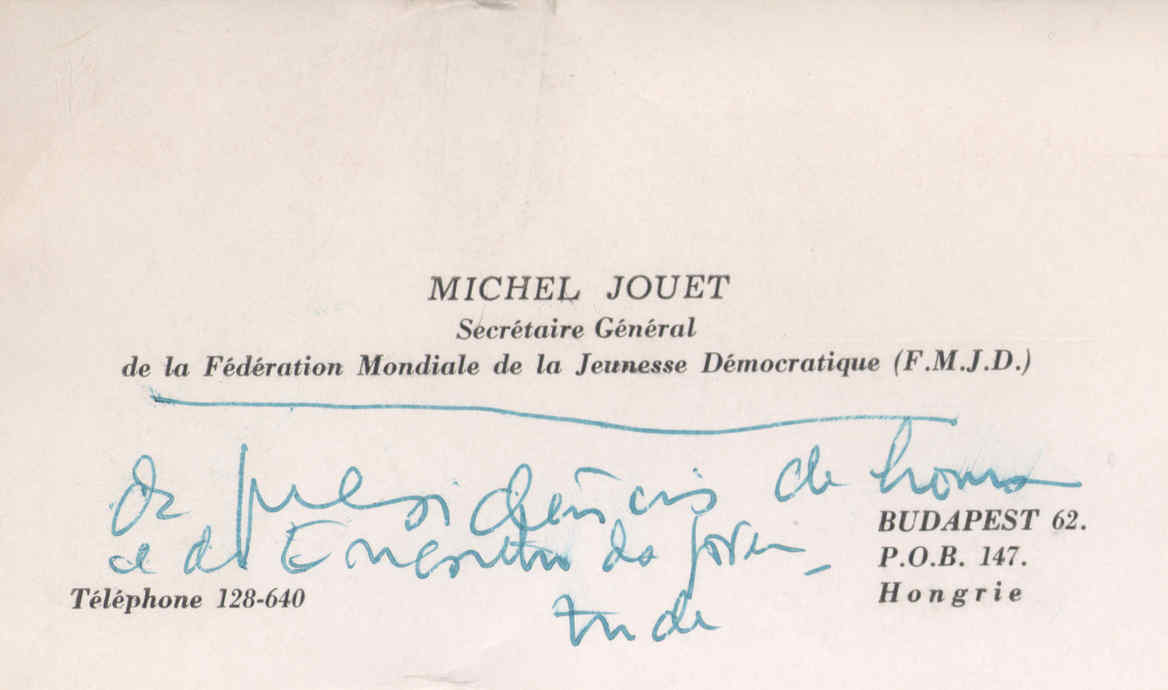 MICHEL JOUET
Secrétaire Général
de la Fédération Mondiale de la Jeunesse Démocratique (F.M.J.D.)
da presidência de honra
do Encontro da Juven-
tude
BUDAPEST 62.
P.O.B. 147.
Hongrie
Téléphone 128-640